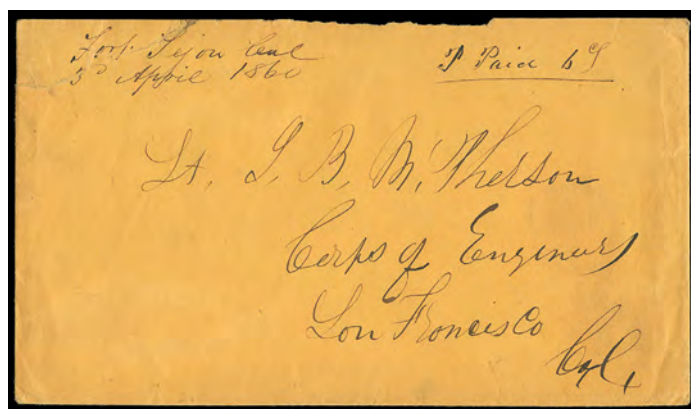 Fort Tejon Cal
3d April 1860
P Paid 6
Lt. J. B. McPherson
Corps of Engineers
San Francisco
Cal,